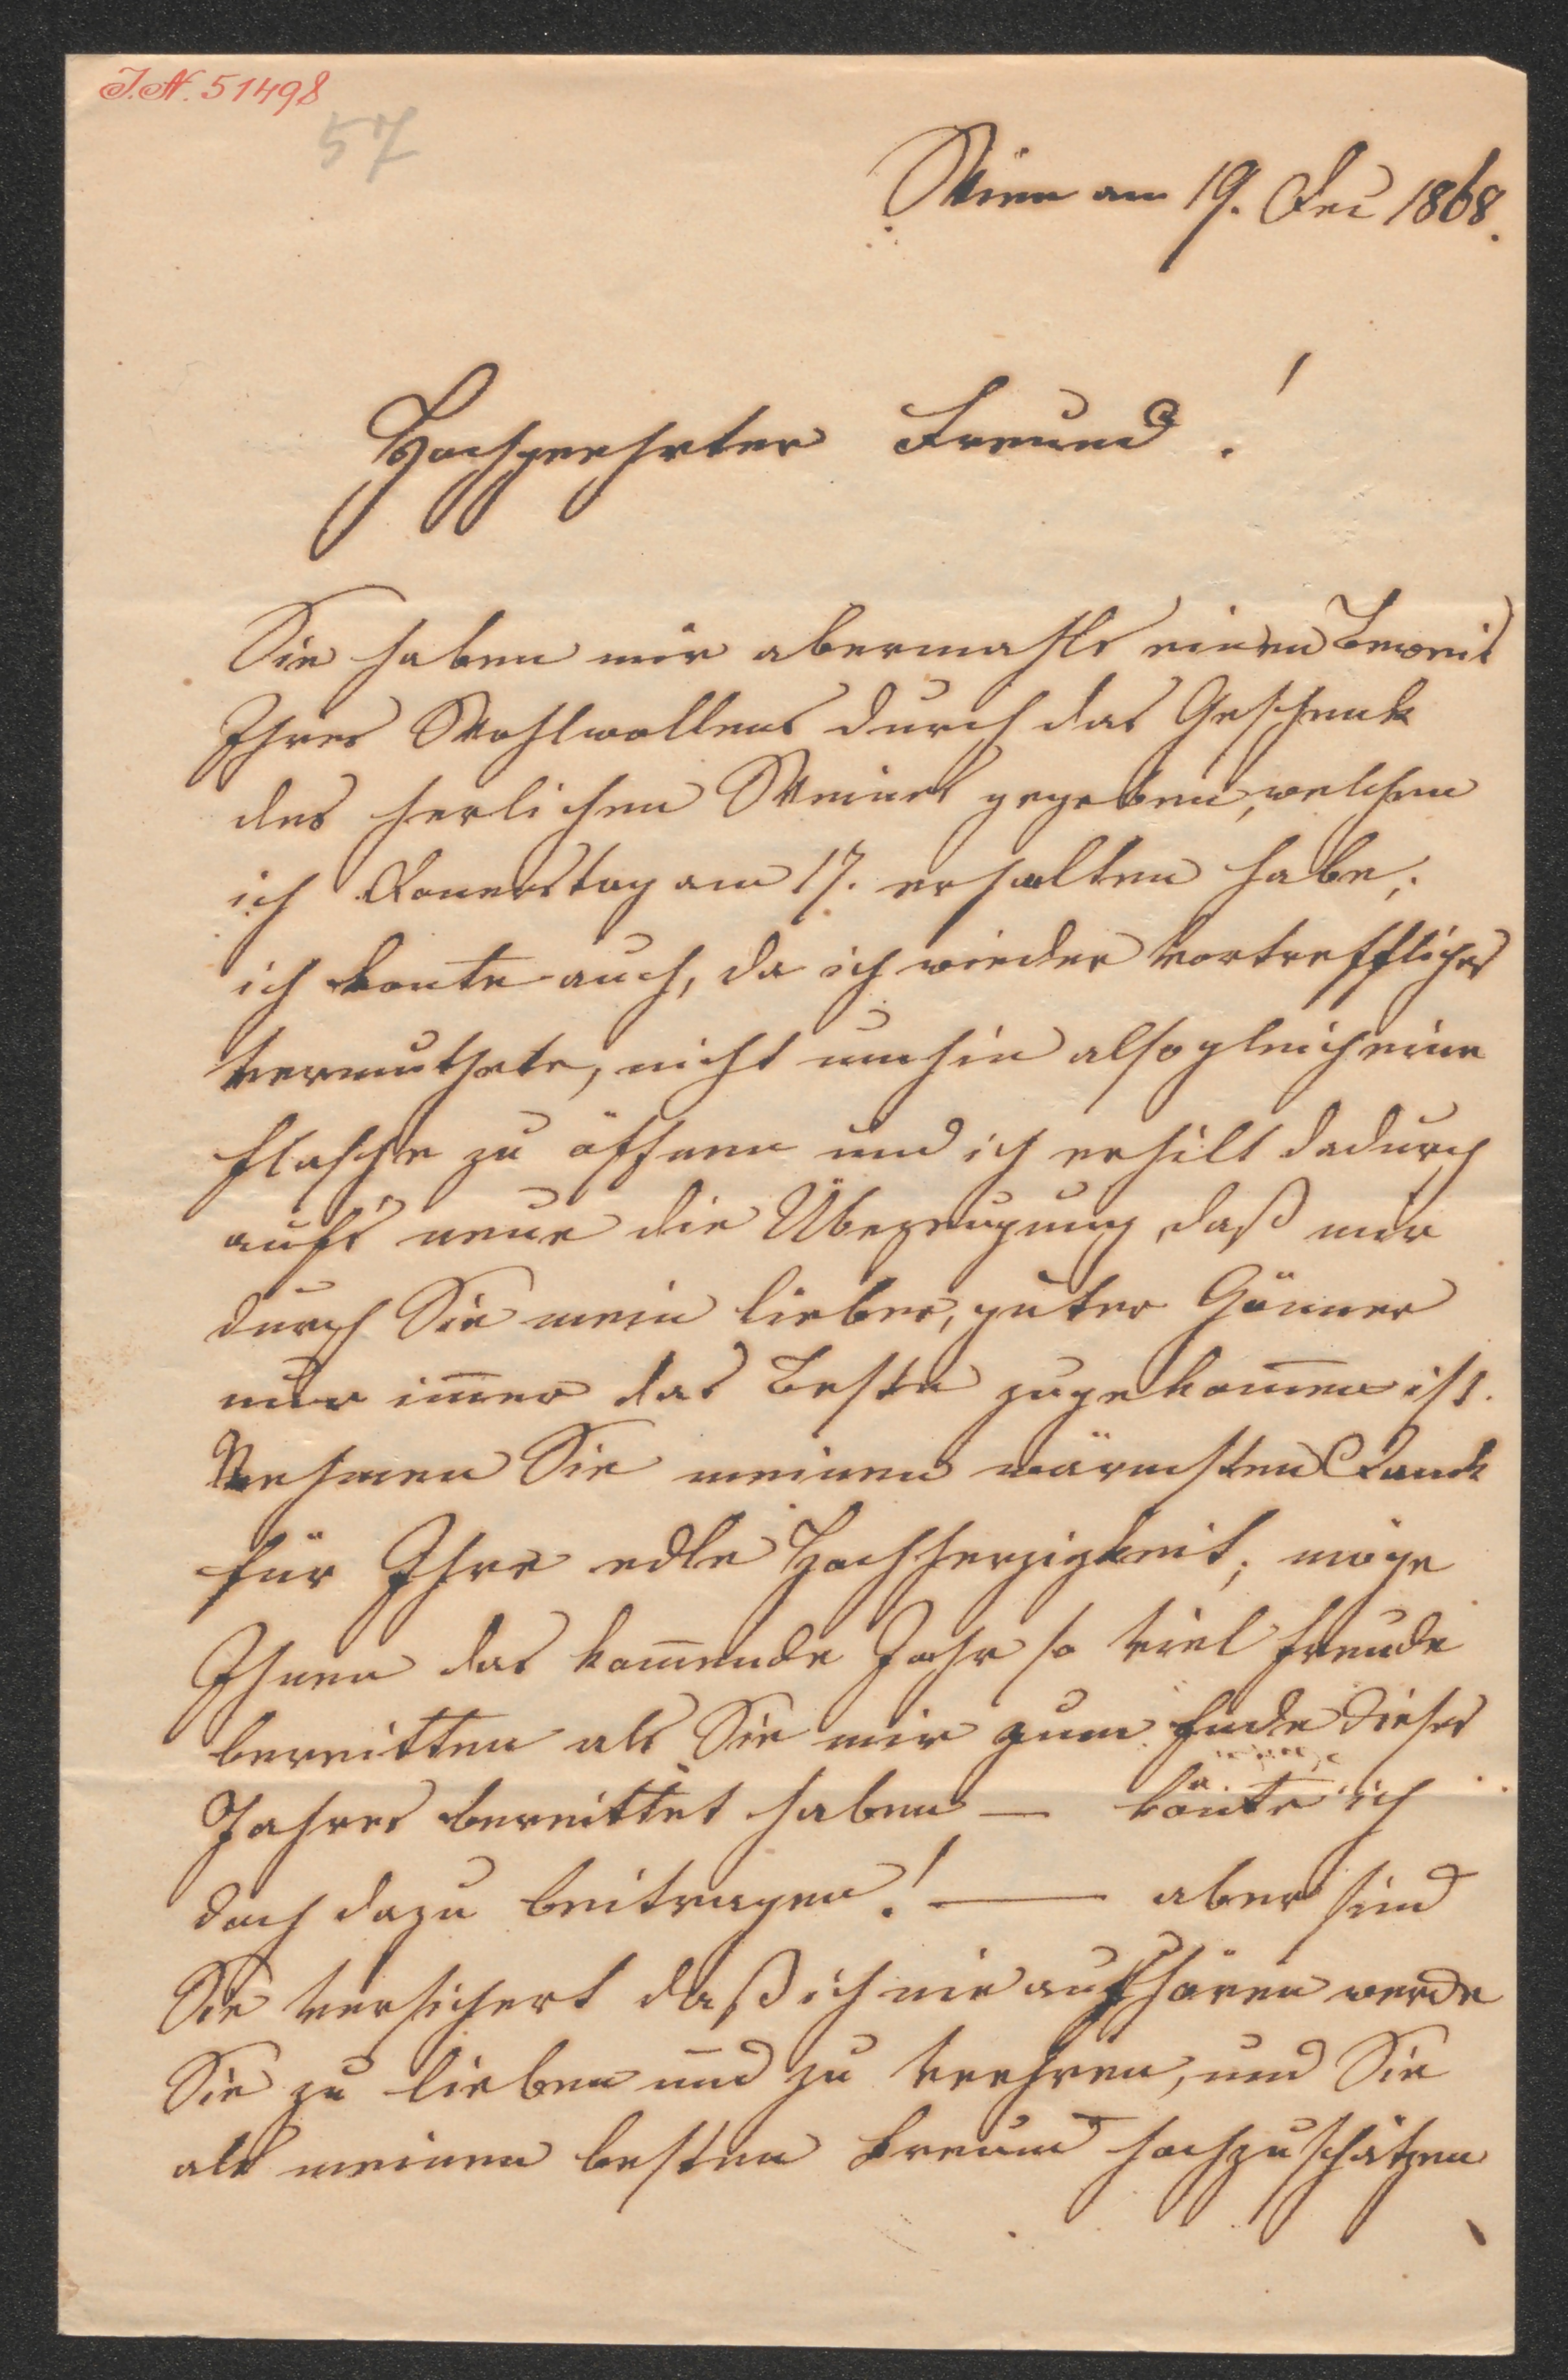 I.N. 51498
57
Wien am 19. Dec 1868.
Hochgeehrter Freund!
Sie haben mir abermahls einen Beweis
Ihres Wohlwollens durch das Geschenk
des herlichen Weines gegeben, welchen
ich Donerstag am 17. erhalten habe;
ich konte auch, da ich wieder vortreffliches
vermuthete, nicht umhin alsogleich eine
Flasche zu öffnen und ich erhilt dadurch
aufs neue die Übezeugung, daß mir
durch Sie mein lieber, guter Gönner
nur im̅er das Beste zugekom̅en ist.
Nehmen Sie meinen wärmsten Dank
für Ihre edle Hochherzigkeit; möge
Ihnen das kom̅ende Jahr so viel Freude
bereitten als Sie mir zum Ende dieses
Jahres bereittet haben — könte ich
doch dazu beitragen! — aber sind
Sie versichert daß ich nie aufhören werde
Sie zu lieben und zu verehren, und Sie
als meinen besten Freund hochzuschätzen